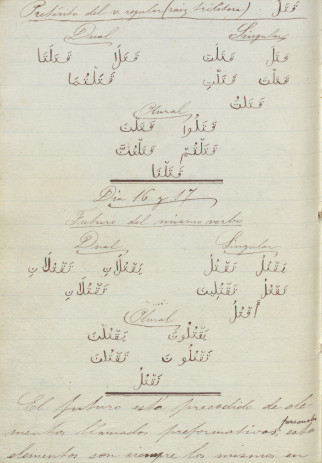 Pretérito del v. regular (raiz trilitera) قَتَلَ
Dual Singular
قَتَلَ قَتَلَتْ قَتَلَا قَتَلَتَا
قَتَلْتَ قَتَلْتِ قَتَلْتُمَا
قَتَلْتُ
Plural
قَتَلُوا قَتَلْنَ
قَتَلْتُمْ قَتَلْتُنَّ
قَتَلْنَا
Dia 16 y 17
Futuro del mismo verbo
Dual Singular
يَقْتُلُ تَقْتُلُ يَقْتُلَانِ تَقْتُلَانِ
تَقْتُلُ تَقْتُلِينَ تَقْتُلَانِ
أَقْتُلُ
Plural
يَقْتُلُونَ يَقْتُلْنَ
تَقْتُلُونَ تَقْتُلْنَ
نَقْتُلُ
El futuro está precedido de ele-
mentos llamados preformativos, estos
elementos son siempre los mismos en